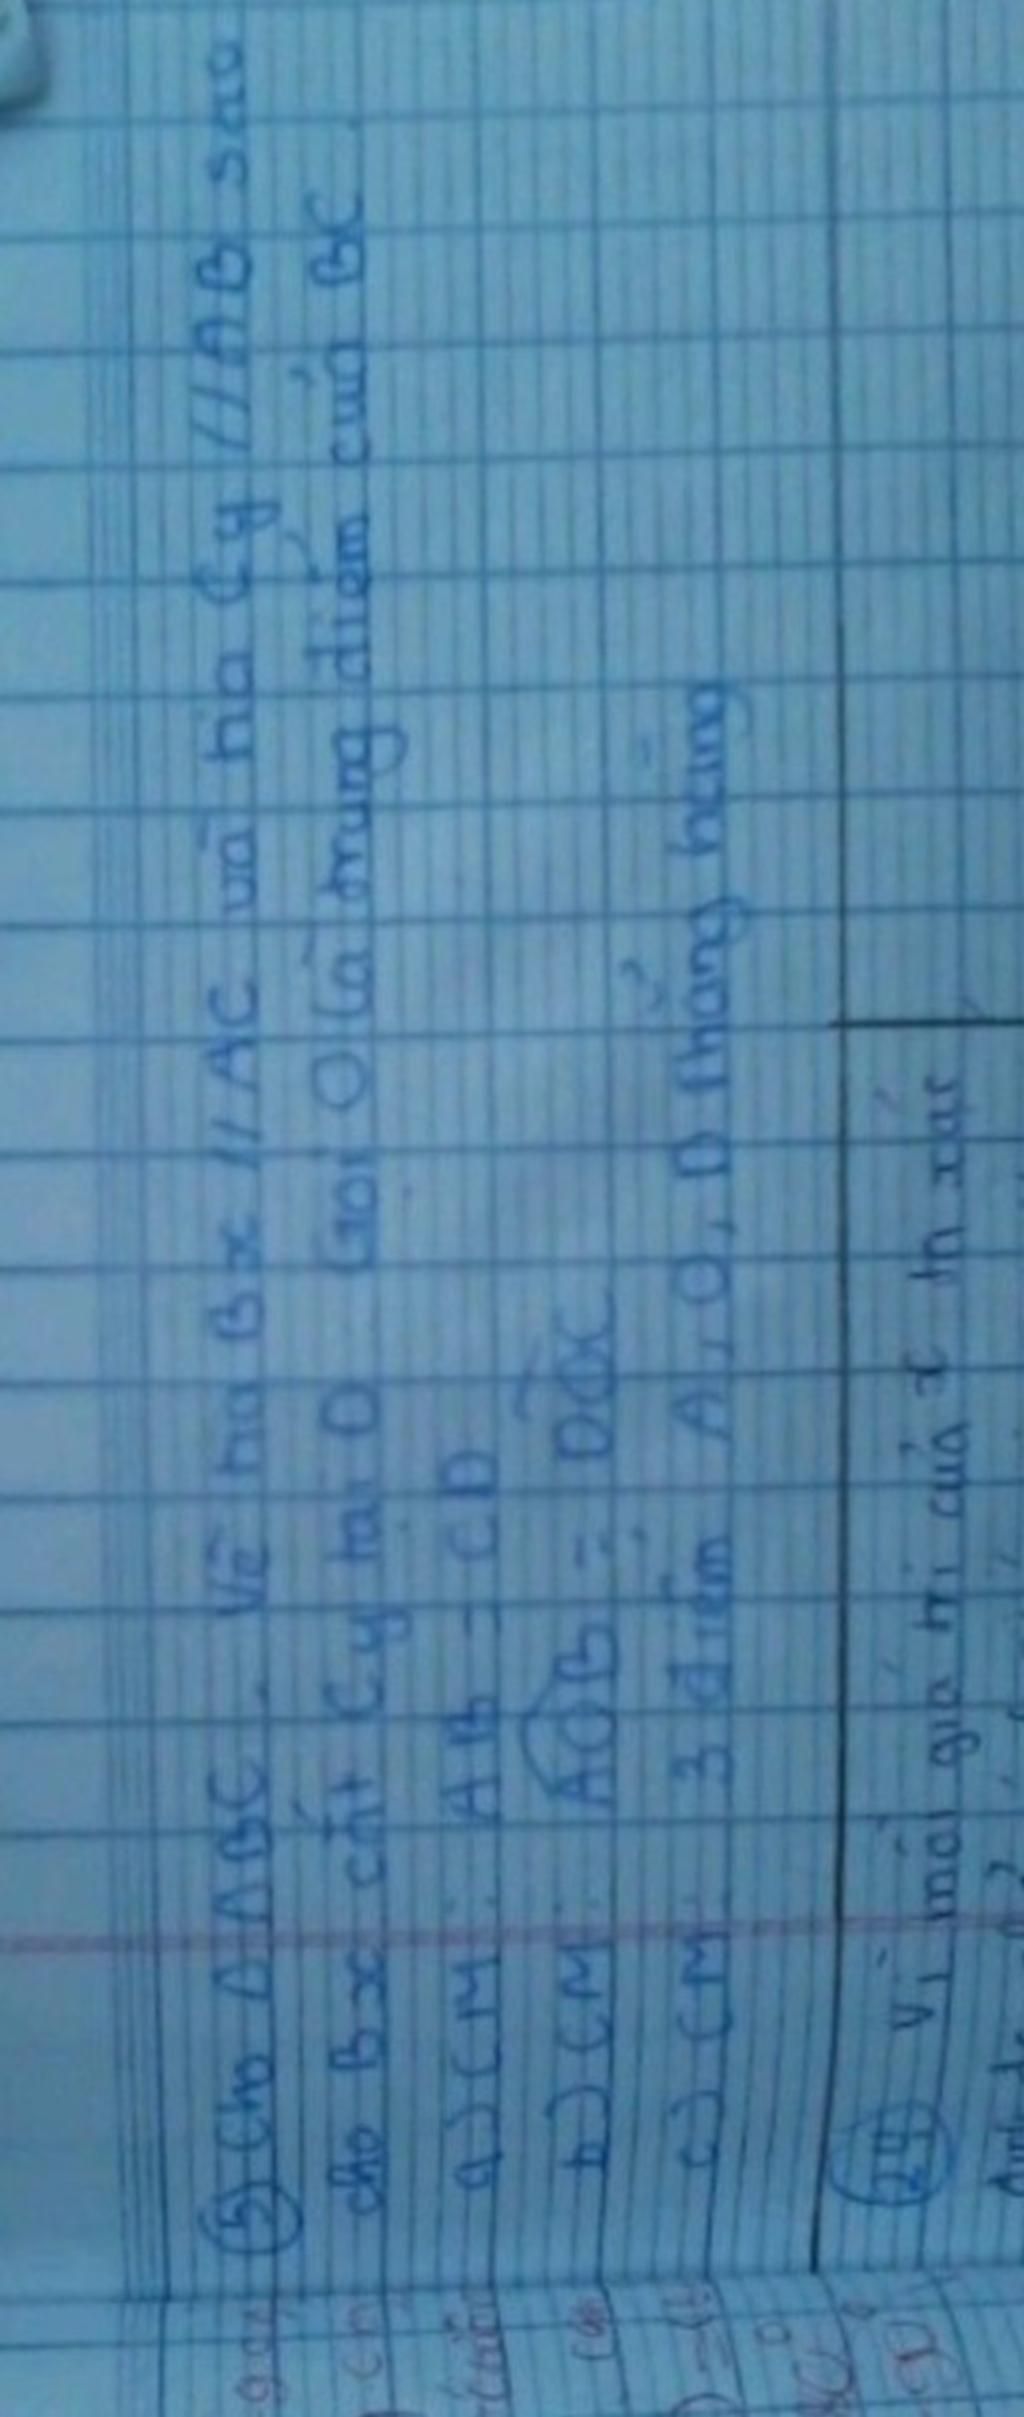 5 Cho ΔABC. Vẽ tia Bx // AC và tia Cy // AB sao
cho Bx cắt Cy tại D Gọi O là trung điểm của BC.
a) CM: AB = CD
b) CM: AOB = DOC
c) CM: 3 điểm A, O, D thẳng hàng
24 Vì mỗi giá trị của x ta xác